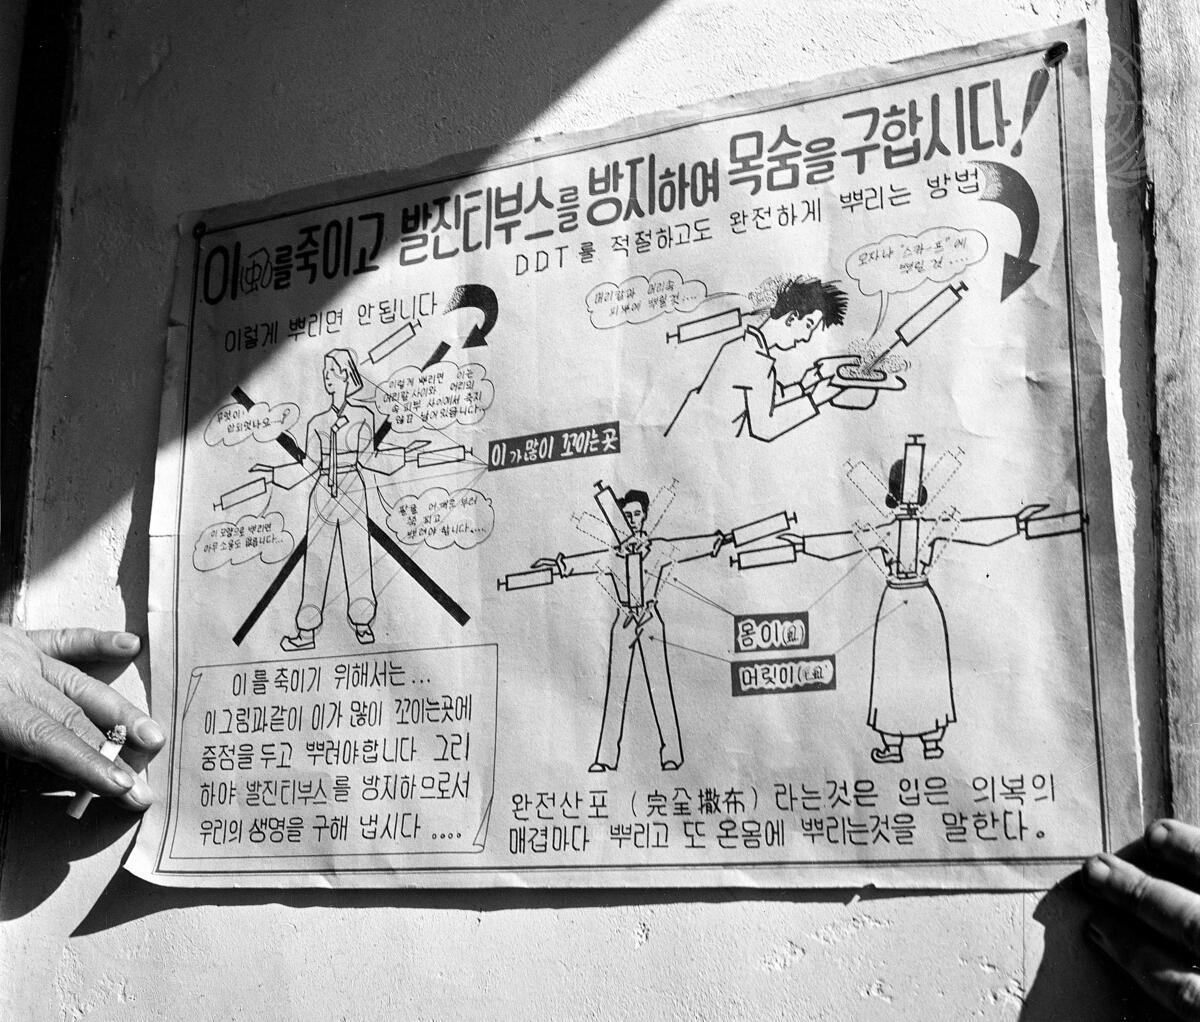 이(虫)를 죽이고 발진티부스를 방지하여 목숨을 구합시다!
DDT를 적절하고도 완전하게 뿌리는 방법
이렇게 뿌리면 안됩니다
무엇이
이렇게 뿌리면 이는
머리칼 사이와 머리의
속 피부 사이에서 죽지
않고 남어 있읍니다...
이 모양으로 뿌리면
아무 소용도 없읍니다...
뿌려야 합니다....
머리칼과 머리속
피부에 뿌릴 것....
모자나 "스카-프"에
뿌릴 것....
이가 많이 꼬이는 곳
몸이
머릿이
이를 죽이기 위해서는...
이그림과같이 이가 많이 꼬이는곳에
중점을 두고 뿌려야합니다 그리
하야 발진티부스를 방지하므로서
우리의 생명을 구해 냅시다....
완전산포 (完全撒布) 라는것은 입은 의복의
매겹마다 뿌리고 또 온몸에 뿌리는것을 말한다.